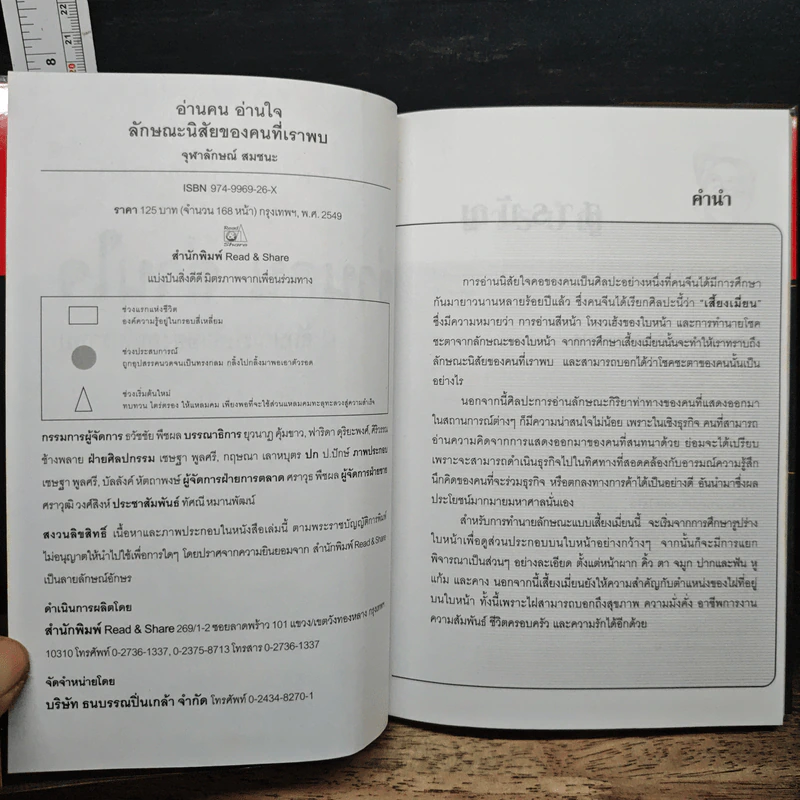 8
20 21 22
อ่านคน อ่านใจ
ลักษณะนิสัยของคนที่เราพบ
จุฬาลักษณ์ สมชนะ
ISBN 974-9969-26-X
ราคา 125 บาท (จำนวน 168 หน้า) กรุงเทพฯ, พ.ศ. 2549
Read
Share
สำนักพิมพ์ Read & Share
แบ่งปันสิ่งดีดี มิตรภาพจากเพื่อนร่วมทาง
ช่วงแรกแห่งชีวิต
องค์ความรู้อยู่ในกรอบสี่เหลี่ยม
ช่วงประสบการณ์
ถูกอุปสรรคนวดจนเป็นทรงกลม กลิ้งไปกลิ้งมาพอเอาตัวรอด
ช่วงเริ่มต้นใหม่
ทบทวน ไตร่ตรอง ให้แหลมคม เพียงพอที่จะใช้ส่วนแหลมคมทะลุทะลวงสู่ความสำเร็จ
กรรมการผู้จัดการ ธวัชชัย พืชผล บรรณาธิการ ยุวนาฏ คุ้มขาว, ฟาริดา ดุริยะพงศ์, ศิวิวรรณ
ช้างพลาย ฝ่ายศิลปกรรม เชษฐา พูลศรี, กฤษณา เลาหบุตร ปก ป.ปักษ์ ภาพประกอบ
เชษฐา พูลศรี, บัลลังค์ หัตถาพงษ์ ผู้จัดการฝ่ายการตลาด ศราวุธ พืชผล ผู้จัดการฝ่ายขาย
ศราวุฒิ วงศ์สิงห์ ประชาสัมพันธ์ ทัศณี หมานพัฒน์
สงวนลิขสิทธิ์ เนื้อหาและภาพประกอบในหนังสือเล่มนี้ ตามพระราชบัญญัติการพิมพ์
ไม่อนุญาตให้นำไปใช้เพื่อการใดๆ โดยปราศจากความยินยอมจาก สำนักพิมพ์ Read & Share
เป็นลายลักษณ์อักษร
ดำเนินการผลิตโดย
สำนักพิมพ์ Read & Share 269/1-2 ซอยลาดพร้าว 101 แขวง/เขตวังทองหลาง กรุงเทพฯ
10310 โทรศัพท์ 0-2736-1337, 0-2375-8713 โทรสาร 0-2736-1337
จัดจำหน่ายโดย
บริษัท ธนบรรณปิ่นเกล้า จำกัด โทรศัพท์ 0-2434-8270-1
คำนำ
การอ่านนิสัยใจคอของคนเป็นศิลปะอย่างหนึ่งที่คนจีนได้มีการศึกษา
กันมายาวนานหลายร้อยปีแล้ว ซึ่งคนจีนได้เรียกศิลปะนี้ว่า "เสี้ยงเมี่ยน"
ซึ่งมีความหมายว่า การอ่านสีหน้า โหงวเฮ้งของใบหน้า และการทำนายโชค
ชะตาจากลักษณะของใบหน้า จากการศึกษาเสี้ยงเมี่ยนนั้นจะทำให้เราทราบถึง
ลักษณะนิสัยของคนที่เราพบ และสามารถบอกได้ว่าโชคชะตาของคนนั้นเป็น
อย่างไร
นอกจากนี้ศิลปะการอ่านลักษณะกิริยาท่าทางของคนที่แสดงออกมา
ในสถานการณ์ต่างๆ ก็มีความน่าสนใจไม่น้อย เพราะในเชิงธุรกิจ คนที่สามารถ
อ่านความคิดจากการแสดงออกมาของคนที่สนทนาด้วย ย่อมจะได้เปรียบ
เพราะจะสามารถดำเนินธุรกิจไปในทิศทางที่สอดคล้องกับอารมณ์ความรู้สึก
นึกคิดของคนที่จะร่วมธุรกิจ หรือตกลงทางการค้าได้เป็นอย่างดี อันนำมาซึ่งผล
ประโยชน์มากมายมหาศาลนั่นเอง
สำหรับการทำนายลักษณะแบบเสี้ยงเมี่ยนนี้ จะเริ่มจากการศึกษารูปร่าง
ใบหน้าเพื่อดูส่วนประกอบบนใบหน้าอย่างกว้างๆ จากนั้นก็จะมีการแยก
พิจารณาเป็นส่วนๆ อย่างละเอียด ตั้งแต่หน้าผาก คิ้ว ตา จมูก ปากและฟัน หู
แก้ม และคาง นอกจากนี้เสี้ยงเมี่ยนยังให้ความสำคัญกับตำแหน่งของไฝที่อยู่
บนใบหน้า ทั้งนี้เพราะไฝสามารถบอกถึงสุขภาพ ความมั่งคั่ง อาชีพการงาน
ความสัมพันธ์ ชีวิตครอบครัว และความรักได้อีกด้วย